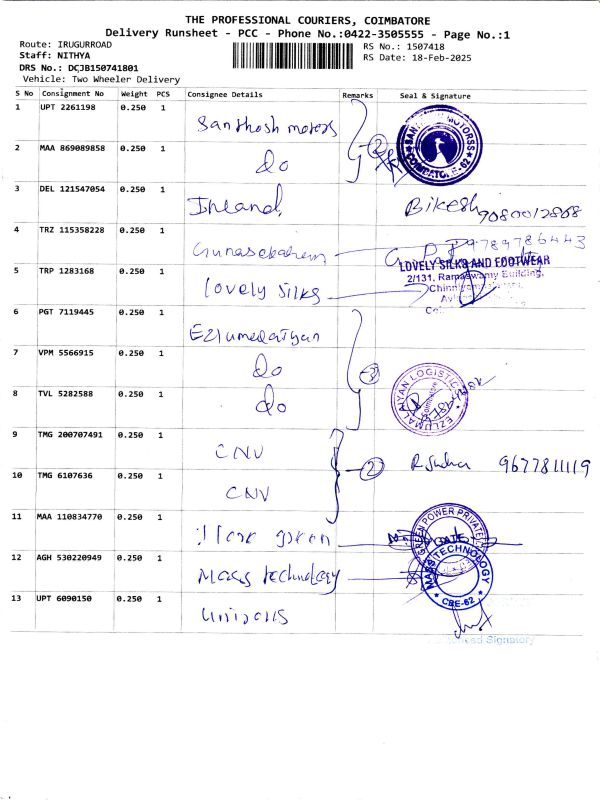 THE PROFESSIONAL COURIERS, COIMBATORE
Delivery Runsheet - PCC - Phone No.:0422-3505555 - Page No.:1
Route: IRUGURROAD
RS No.: 1507418
Staff: NITHYA
RS Date: 18-Feb-2025
DRS No.: DCJB150741801
Vehicle: Two Wheeler Delivery
S No Consignment No Weight PCS Consignee Details Remarks Seal & Signature
1 UPT 2261198 0.250 1 Santhosh motors
2 MAA 869089858 0.250 1 do 2
COIMBATORE-62
3 DEL 121547054 0.250 1 Inland Bikesh 9080012868
4 TRZ 115358228 0.250 1 Gunasekaren 9789786443
5 TRP 1283168 0.250 1 Lovely Silks
LOVELY SILKS AND FOOTWEAR
2/131, Ramaswamy Building,
6 PGT 7119445 0.250 1
7 VPM 5566915 0.250 1 do 3
8 TVL 5282588 0.250 1 do
EZLUMALAIYAN LOGISTICS
9 TMG 200707491 0.250 1 CNV
2 9677811119
10 TMG 6107636 0.250 1 CNV
11 MAA 110834770 0.250 1 green
GREEN POWER PRIVATE
12 AGH 530220949 0.250 1 Mass technology
MASS TECHNOLOGY
CBE-62
13 UPT 6090150 0.250 1
Signatory